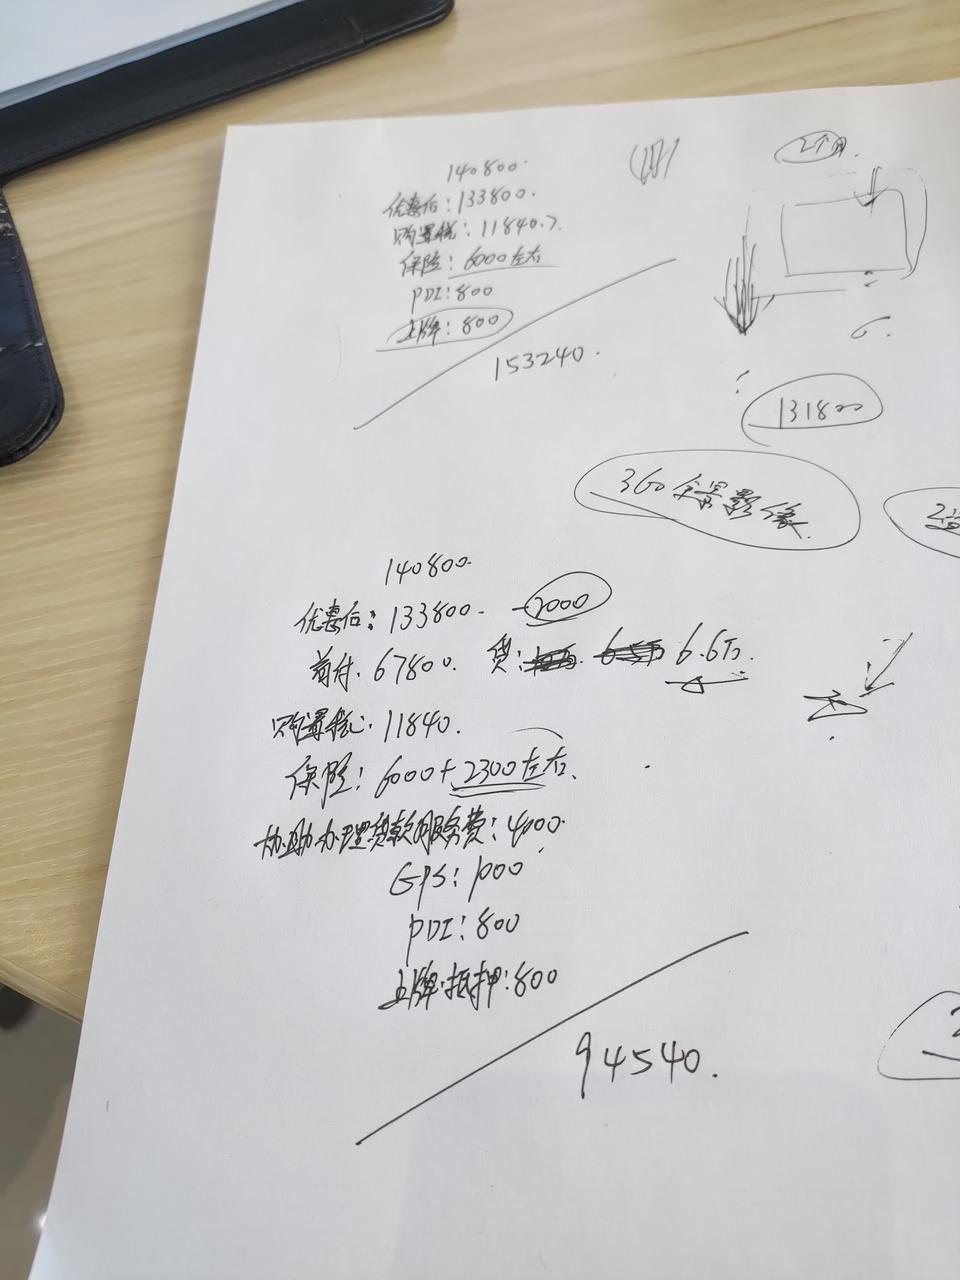 140800.
优惠后：133800.
购置税：11840.7.
保险：6000左右
PDI：800
上牌：800
153240.
2个月.
131800
360全景影像
140800.
优惠后：133800. -2000
首付.67800. 贷： 6.6万.
购置税.11840.
保险：6000+2300左右.
协助办理贷款服务费：4000.
GPS：1000
PDI：800
上牌.抵押：800
94540.